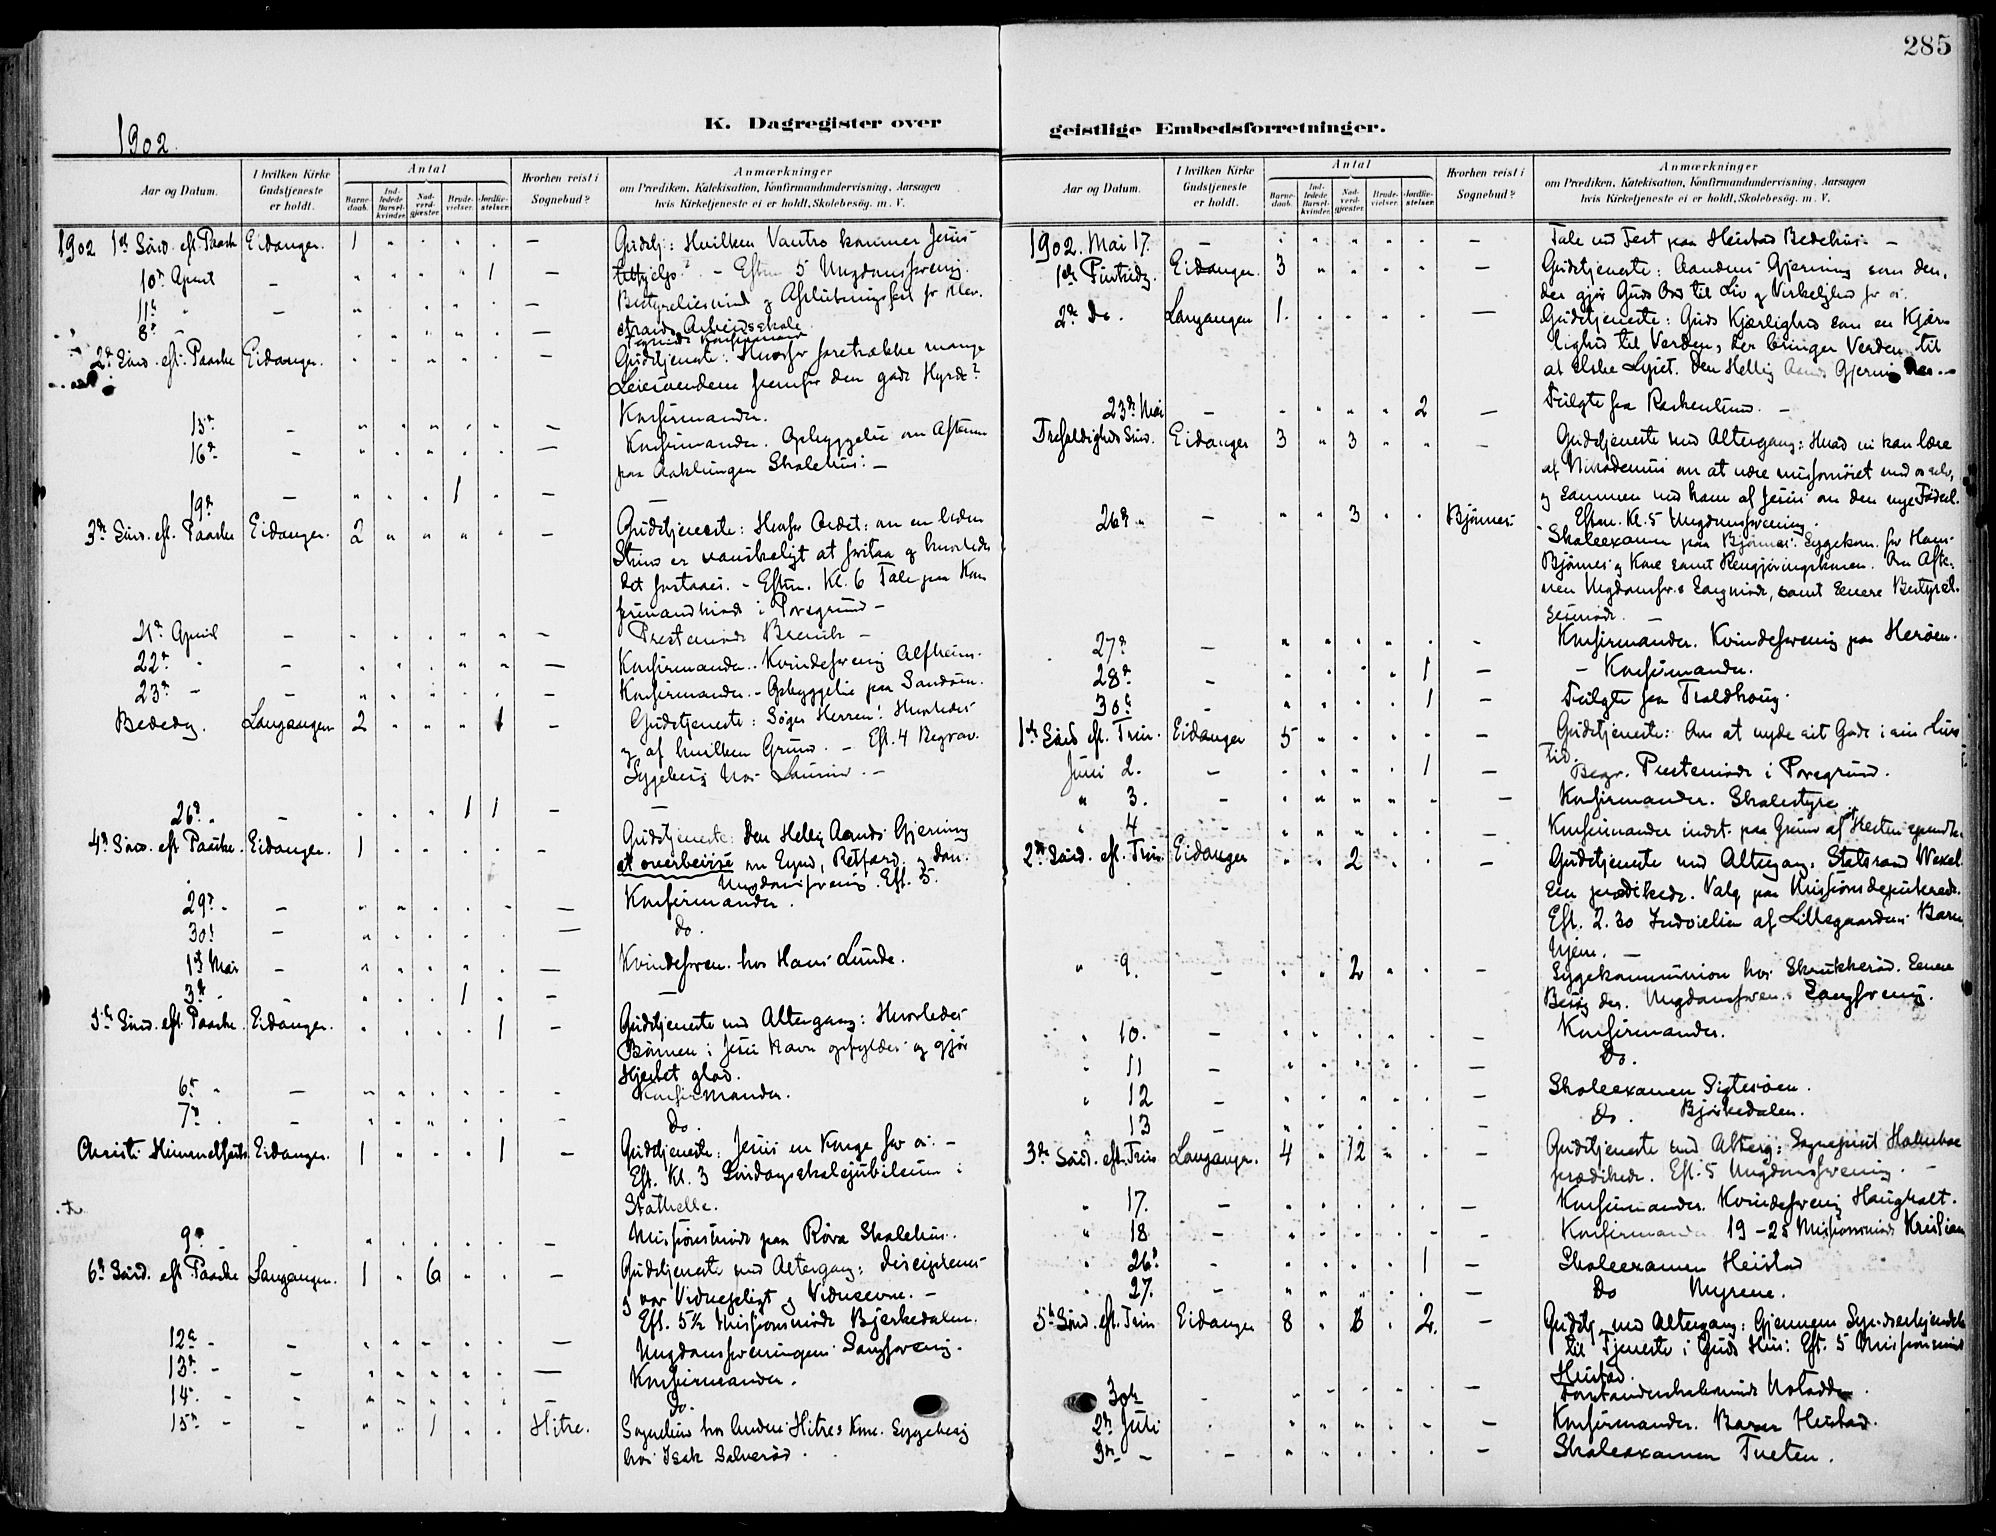 285
1902.
K. Dagregister over
geistlige Embedsforretninger.
Aar og Datum.
I hvilken Kirke Gudstjeneste er holdt.
Antal
Barnedaab.
Indledede Barselkvinder.
Nadverdgjester.
Brudevielser.
Jordfæstelser.
Hvorhen reist i Sognebud?
Anmærkninger
om Prædiken, Katekisation, Konfirmandundervisning, Aarsagen
hvis Kirketjeneste ei er holdt, Skolebesøg, m. V.
1902 1ste Sønd. eft. Paaske Eidanger. 1 - Gudstj: Hvilken Vantro kommer Jesus
10de April - 1 - tilhjelp? - Eftm 5 Ungdomsforening.
11te - -
8de -
2den Sønd. eft. Paaske Eidanger. Gudstjeneste: Hvorfor foretrække mange
Leiesvendene fremfor den gode Hyrde?
15de - - Konfirmander.
16de - - Konfirmander. Opbyggelse om Aftenen
paa Aaklungen Skolehus: -
19de - 1 - -
3die Sønd. eft. Paaske Eidanger. 2 - Gudstjeneste: Hvorfor Ordet: om en liden
Stund er vanskeligt at forstaa og hvorledes
det forstaaes. - Eftm. Kl. 6 Tale paa Kon
firmandmøde i Porsgrund -
21de April - - Prestemøde Brevik -
22de - - Konfirmander. Kvindeforening Alfheim.
23de - - Konfirmander. - Opbyggelse paa Sandøen.
Bededag. Langangen 2 1 - Gudstjeneste: Søger Herren! Hvorledes
og af hvilken Grund. - Eft. 4 Begrav.
Sygebesøg hos
26de - 1 1 - -
4de Sønd. eft Paaske. Eidanger. 1 - Gudstjeneste: Den Hellig Aands Gjerning
at overbevise om Synd, Retfærd. og Dom.
Ungdomsforening. Eft. 5.
29de - - Konfirmander.
30te - - Do.
1ste Mai - - Kvindeforen. hos Hans Lunde.
3die - 1 - -
5te Sønd. eft. Paaske. Eidanger. 1 - Gudstjeneste med Altergang: Hvorledes
Bønnen i Jesu Navn opfyldes og gjør
Hjertet glad.
6te - - Konfirmander.
7de - - Do.
Christi Himmelfarts Eidanger. 1 1 - Gudstjeneste: Jesus en Konge for os. -
Eft. Kl. 3 Søndagsskolejubilæum i
Stathelle.
9de - Missionsmøde paa Røra Skolehus.
6te Sønd. eft Paaske Langangen. 1 6 - Gudstjeneste med Altergang: Disciplenes
og vor Vidnepligt og Vidneevne. -
Eft. 5½ Missionsmøde Bjerkedalen.
12te - - Ungdomsforeningens Sangforening.
13de - - Konfirmander.
14de - - Do.
15de - 1 Hitre. Sognebud hos Anders Hitres Kone. Sygebesøg
hos Isak
Aar og Datum.
I hvilken Kirke Gudstjeneste er holdt.
Antal
Barnedaab.
Indledede Barselkvinder.
Nadverdgjester.
Brudevielser.
Jordfæstelser.
Hvorhen reist i Sognebud?
Anmærkninger
om Prædiken, Katekisation, Konfirmandundervisning, Aarsagen
hvis Kirketjeneste ei er holdt, Skolebesøg, m. V.
1902. Mai 17. - - Tale ved Fest paa Heistad Bedehus. -
1ste Pintsedg. Eidanger. 3 - Gudstjeneste: Aandens Gjerning som den,
der gjør Guds Ord til Liv og Virkelighed for os.
2den Do. Langangen 1. - Gudstjeneste: Guds Kjærlighed som en Kjær
lighed til Verden, der bringer Verden til
at elske Lyset. Den Hellig Aands Gjerni
23de Mai - 2 - Fulgte fra
Trefoldigheds Sønd. Eidanger 3 3 - Gudstjeneste med Altergang: Hvad vi kan lære
af Nicodemus om at være misfornøiet med os selv,
og sammen med ham af Jesus om den nye Fødsel.
Eftm. Kl. 5 Ungdomsforening.
26de - 3 Bjørnes Skoleexamen paa Bjørnes. Sygekom. for Hans
Bjørnes og Kone samt Rengjøringskonen. Om Afte-
nen Ungdomsfor.s Sangmøde, samt senere Bestyrel-
sesmøde.
27de - Konfirmander. Kvindeforening paa Herøen.
28de - 1 - Konfirmander.
30te - 1 - Fulgte fra
1ste Sønd eft. Trin. Eidanger 5 - Gudstjeneste: Om at nyde sit Gode i sin Livs
Tid.
Juni 2. - 1 - Begr. Prestemøde i Porsgrund.
" 3. - - Konfirmander. Skolestyre
" 4 - Konfirmander indst. paa Grund af
2den Sønd. eft. Trin. Eidanger 2 - Gudstjeneste med Altergang. Statsraad Wexel
sen prædikede. Valg paa Missionsdeputerede.
Eft. 2.30 Indvielse af Lillegaardens Barne
hjem. -
" 9. - 2 - Sygekommunion hos Skrukkerød. Senere
Besøg der. Ungdomsforen. Sangforening.
" 10. - - Konfirmander.
" 11 - - Do.
" 12 - - Skoleexamen
" 13 - - Do. Bjørkedalen.
3die Sønd. eft. Trin Langangen. 4 12 - Gudstjeneste med Alterg: Sogneprest Holmboe
prædikede. Eft. 5 Ungdomsforening. -
" 17. - - Konfirmander. Kvindeforening Haugholt.
" 18 - - Konfirmander 19 - 25 Missionsmøde Kristian
" 26de - 1 - Skoleexamen Heistad
" 27. - - Do Myrene.
5te Sønd. eft. Trin Eidanger 8 2. - Gudstj. med Altergang: Gjennem Syndserkjendelse
til Tjeneste i Guds Hus: Eft. 5 Missionsmøde
Heistad.
30te - -
2den Juli - Konfirmander. Heistad.
3die - - - Skoleexamen Tveten.